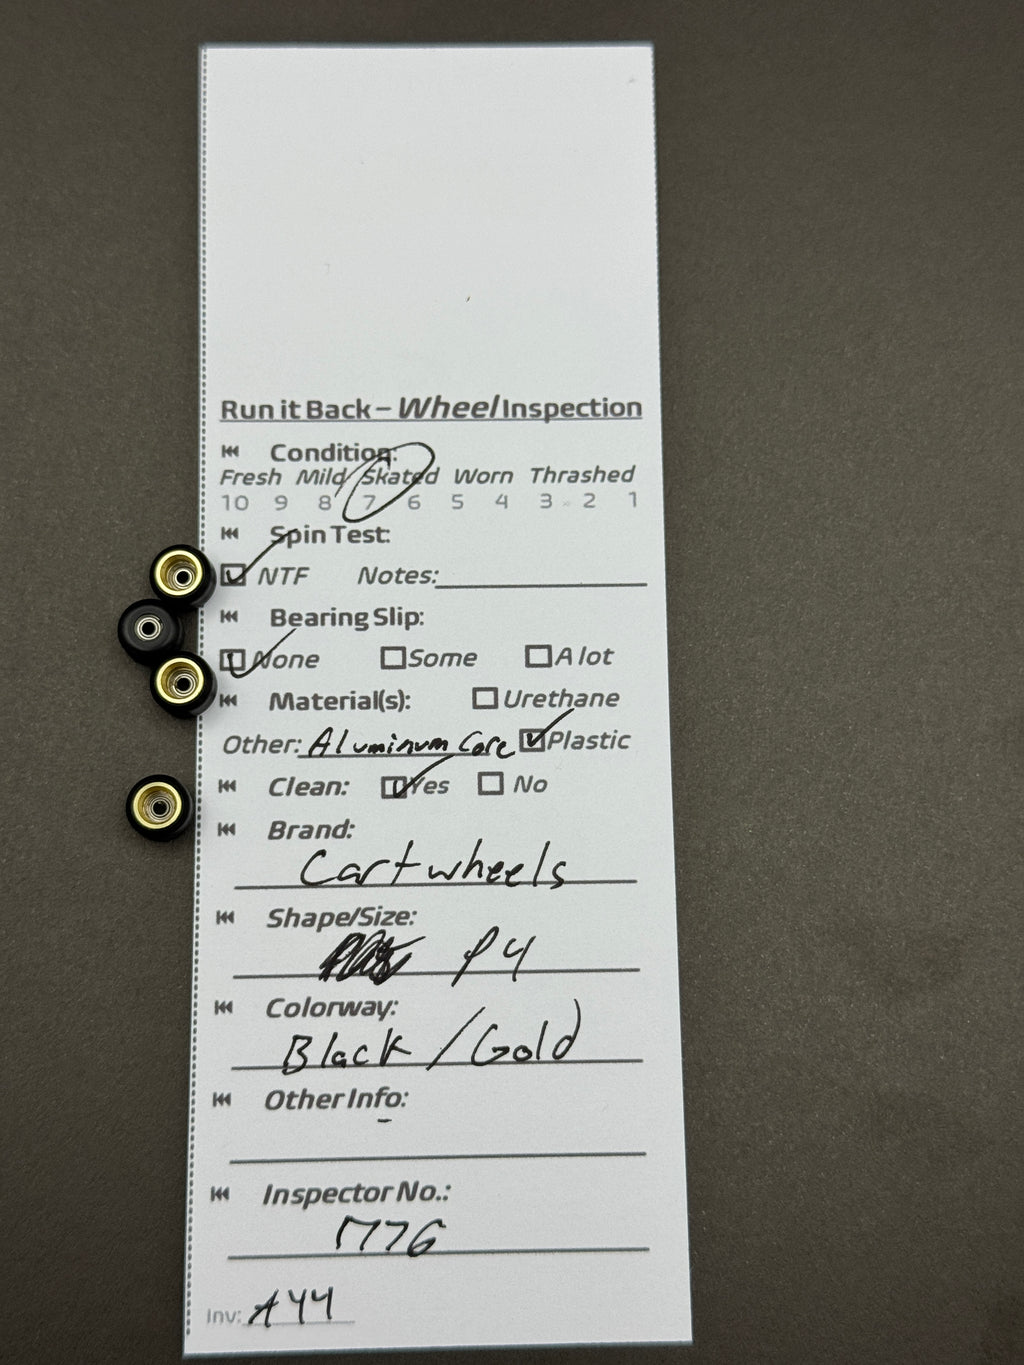 Run it Back – Wheel Inspection
Condition:
Fresh Mild Skated Worn Thrashed
10 9 8 7 6 5 4 3 2 1
Spin Test:
NTF Notes:
Bearing Slip:
None Some A lot
Material(s): Urethane
Other: Aluminum Core Plastic
Clean: Yes No
Brand:
Cartwheels
Shape/Size:
P4
Colorway:
Black / Gold
Other Info:
-
Inspector No.:
1776
Inv: A44